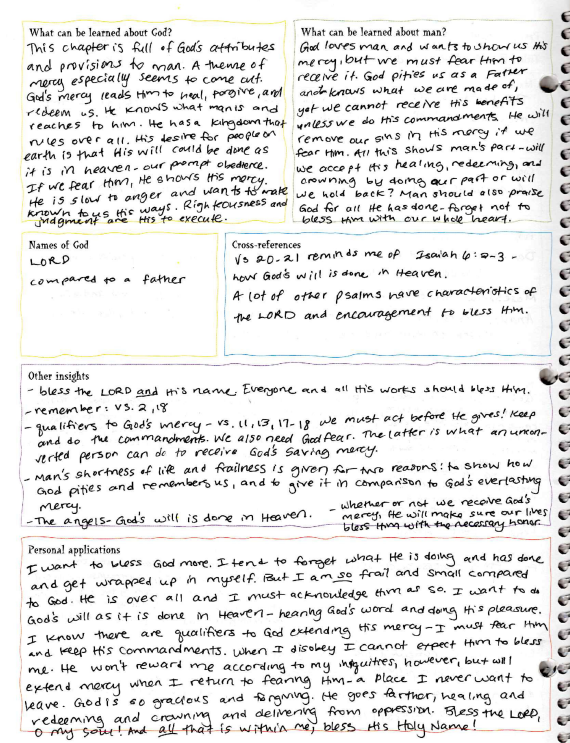 What can be learned about God?
This chapter is full of God's attributes
and provisions to man. A theme of
mercy especially seems to come out.
God's mercy leads Him to heal, forgive, and
redeem us. He knows what man is and
reaches to him. He has a kingdom that
rules over all. His desire for people on
earth is that His will could be done as
it is in heaven - our prompt obedience.
If we fear Him, He shows His mercy.
He is slow to anger and wants to make
known to us His ways. Righteousness and
judgment are His to execute.
What can be learned about man?
God loves man and wants to show us His
mercy, but we must fear Him to
receive it. God pities us as a Father
and knows what we are made of,
yet we cannot receive His benefits
unless we do His commandments. He will
remove our sins in His mercy if we
fear Him. All this shows man's part - will
we accept His healing, redeeming, and
crowning by doing our part or will
we hold back? Man should also praise
God for all He has done - forget not to
bless Him with our whole heart.
Names of God
LORD
compared to a father
Cross-references
Vs 20-21 reminds me of Isaiah 6:2-3 -
how God's will is done in Heaven.
A lot of other psalms have characteristics of
the LORD and encouragement to bless Him.
Other insights
- bless the LORD and His name. Everyone and all His works should bless Him.
- remember: vs. 2, 18
- qualifiers to God's mercy - vs. 11, 13, 17-18 we must act before He gives! Keep
and do the commandments. We also need God fear. The latter is what an uncon-
verted person can do to receive God's saving mercy.
- Man's shortness of life and frailness is given for two reasons: to show how
God pities and remembers us, and to give it in comparison to God's everlasting
mercy.
- The angels - God's will is done in Heaven.
- whether or not we receive God's
mercy, He will make sure our lives
bless Him with the necessary honor.
Personal applications
I want to bless God more. I tend to forget what He is doing and has done
and get wrapped up in myself. But I am so frail and small compared
to God. He is over all and I must acknowledge Him as so. I want to do
God's will as it is done in Heaven - hearing God's word and doing His pleasure.
I know there are qualifiers to God extending His mercy - I must fear Him
and keep His commandments. When I disobey I cannot expect Him to bless
me. He won't reward me according to my iniquities, however, but will
extend mercy when I return to fearing Him - a place I never want to
leave. God is so gracious and forgiving. He goes farther, healing and
redeeming and crowning and delivering from oppression. Bless the LORD,
O my soul! And all that is within me, bless His Holy Name!